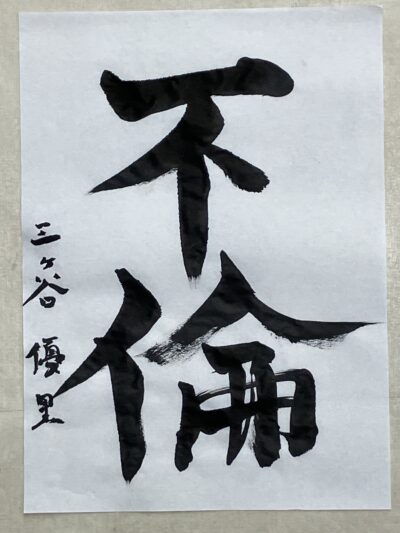 不倫
三ヶ谷 優里